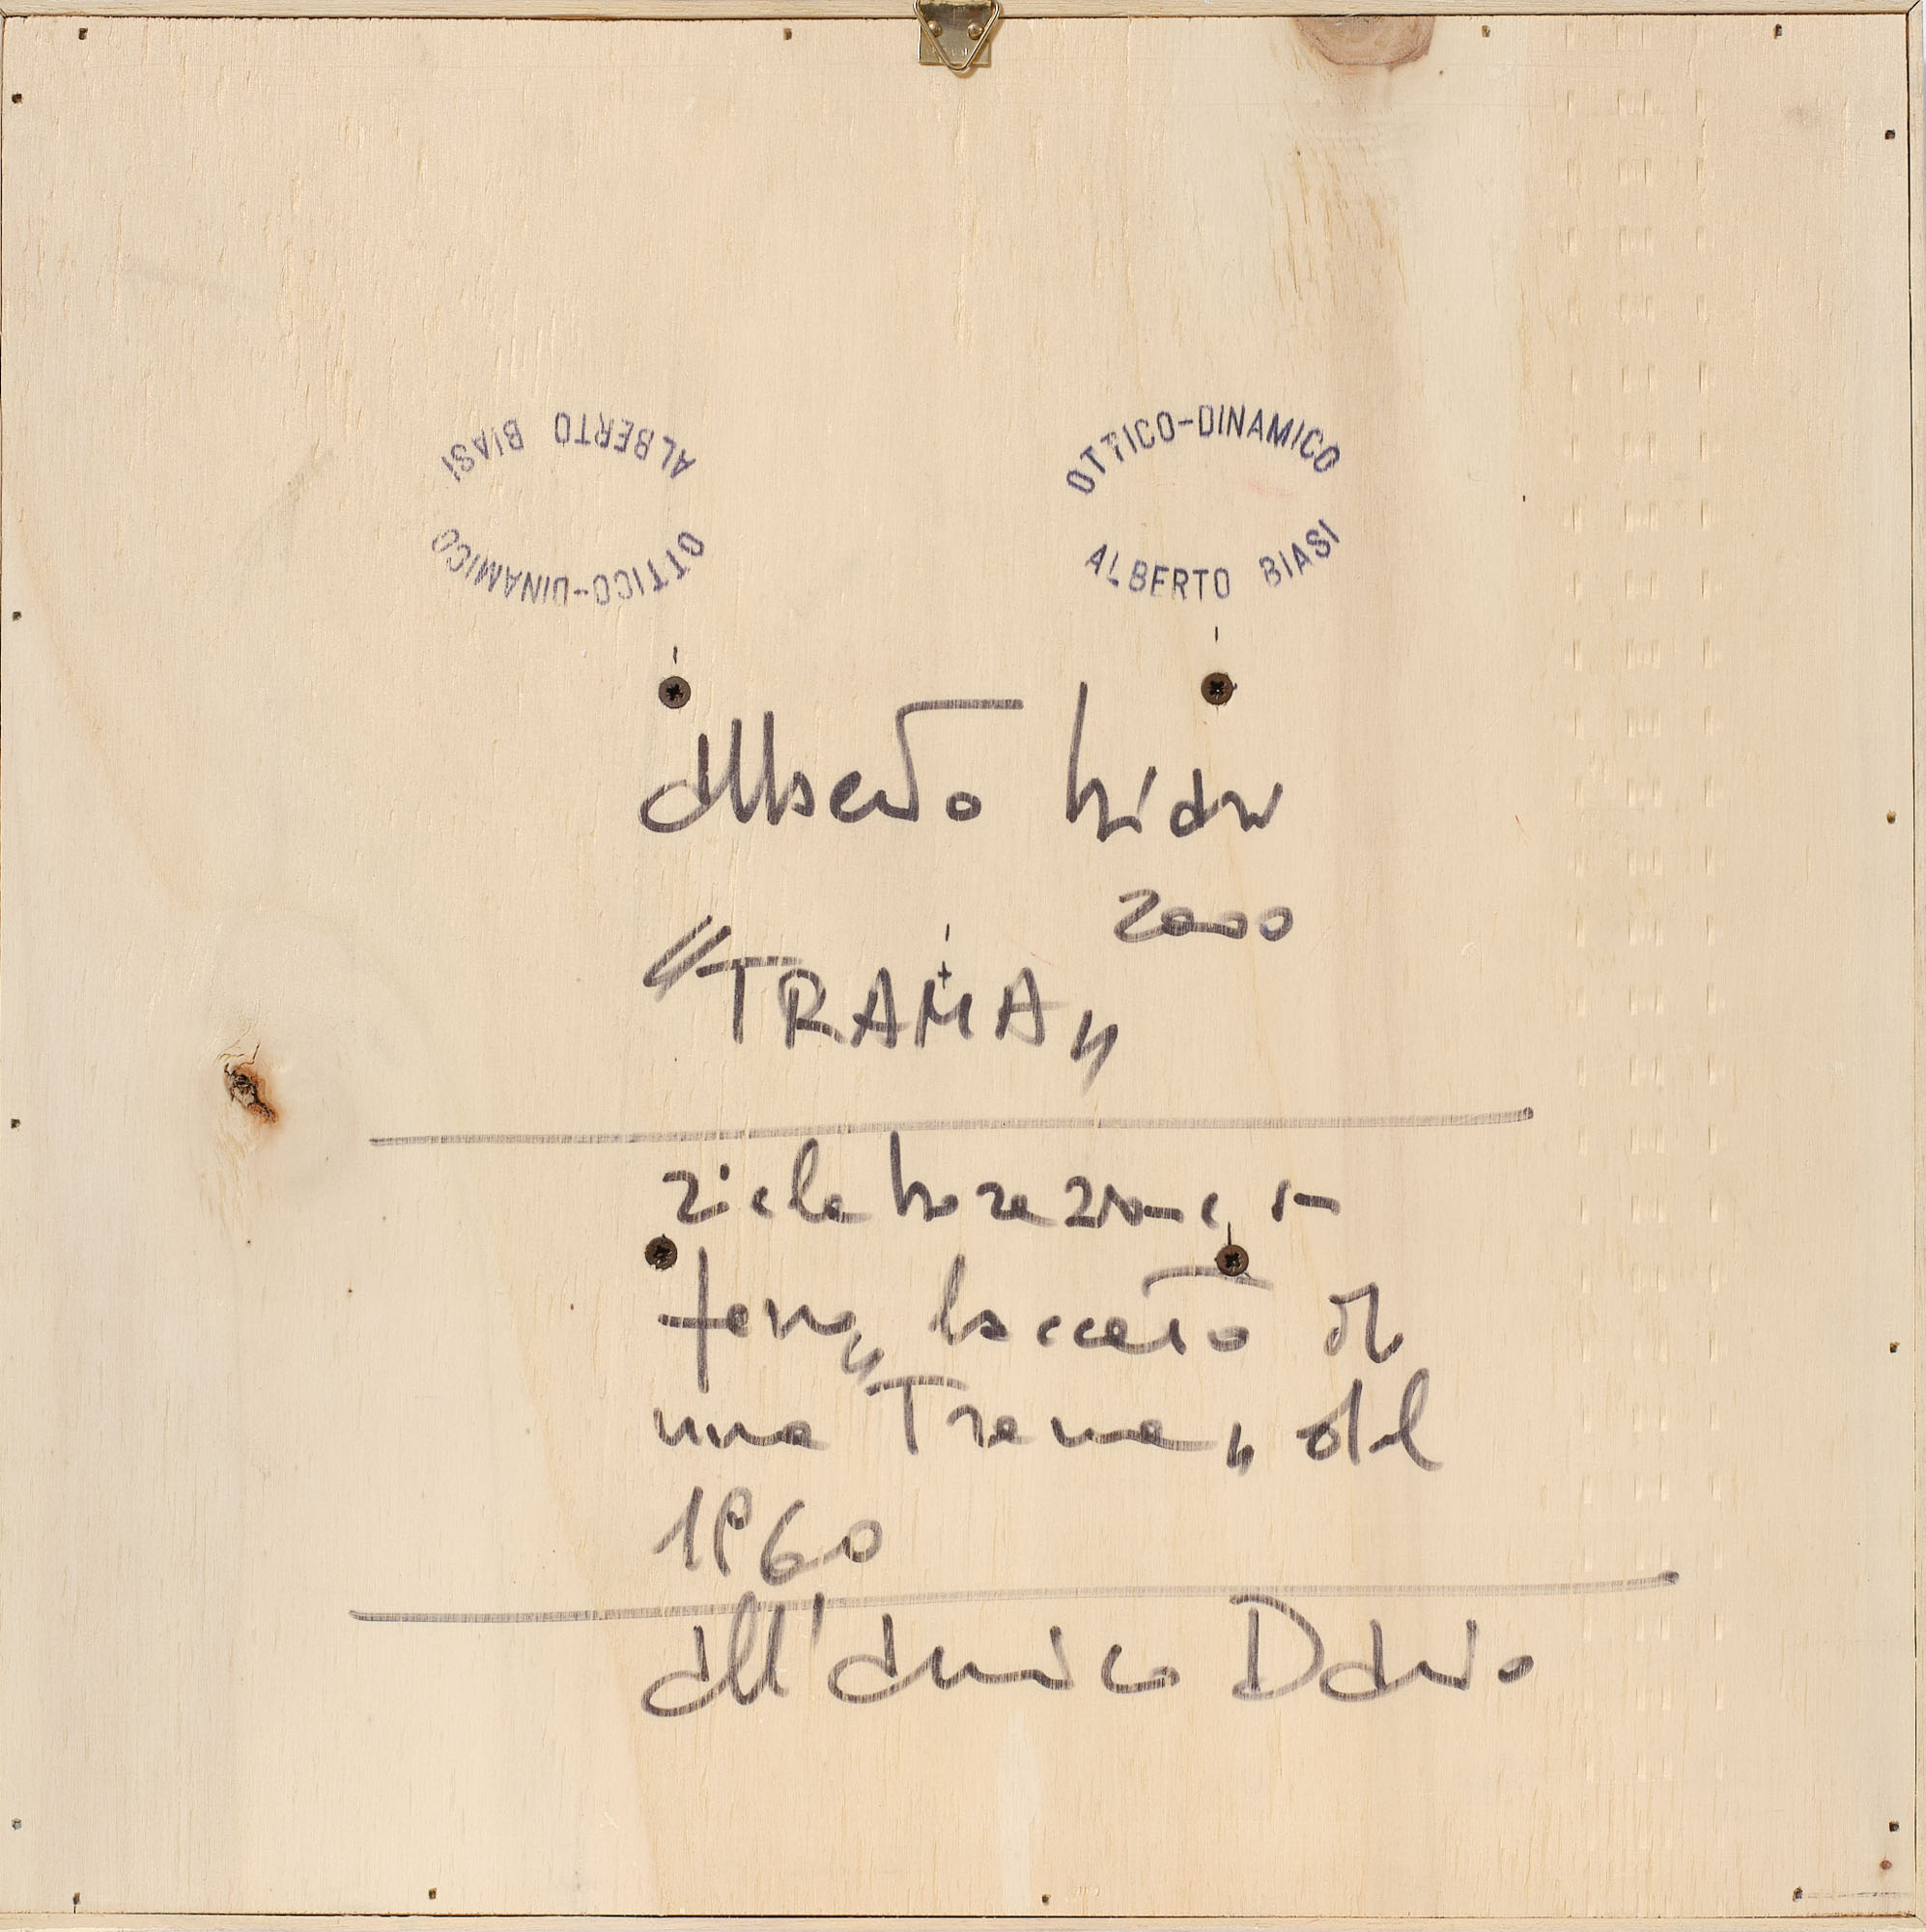 ALBERTO BIASI
OTTICO-DINAMICO
OTTICO-DINAMICO
ALBERTO BIASI
Alberto Biasi
2000
"TRAMA"
rielaborazione in
ferro laccato di
una "Trama" del
1960
All'amico Dario